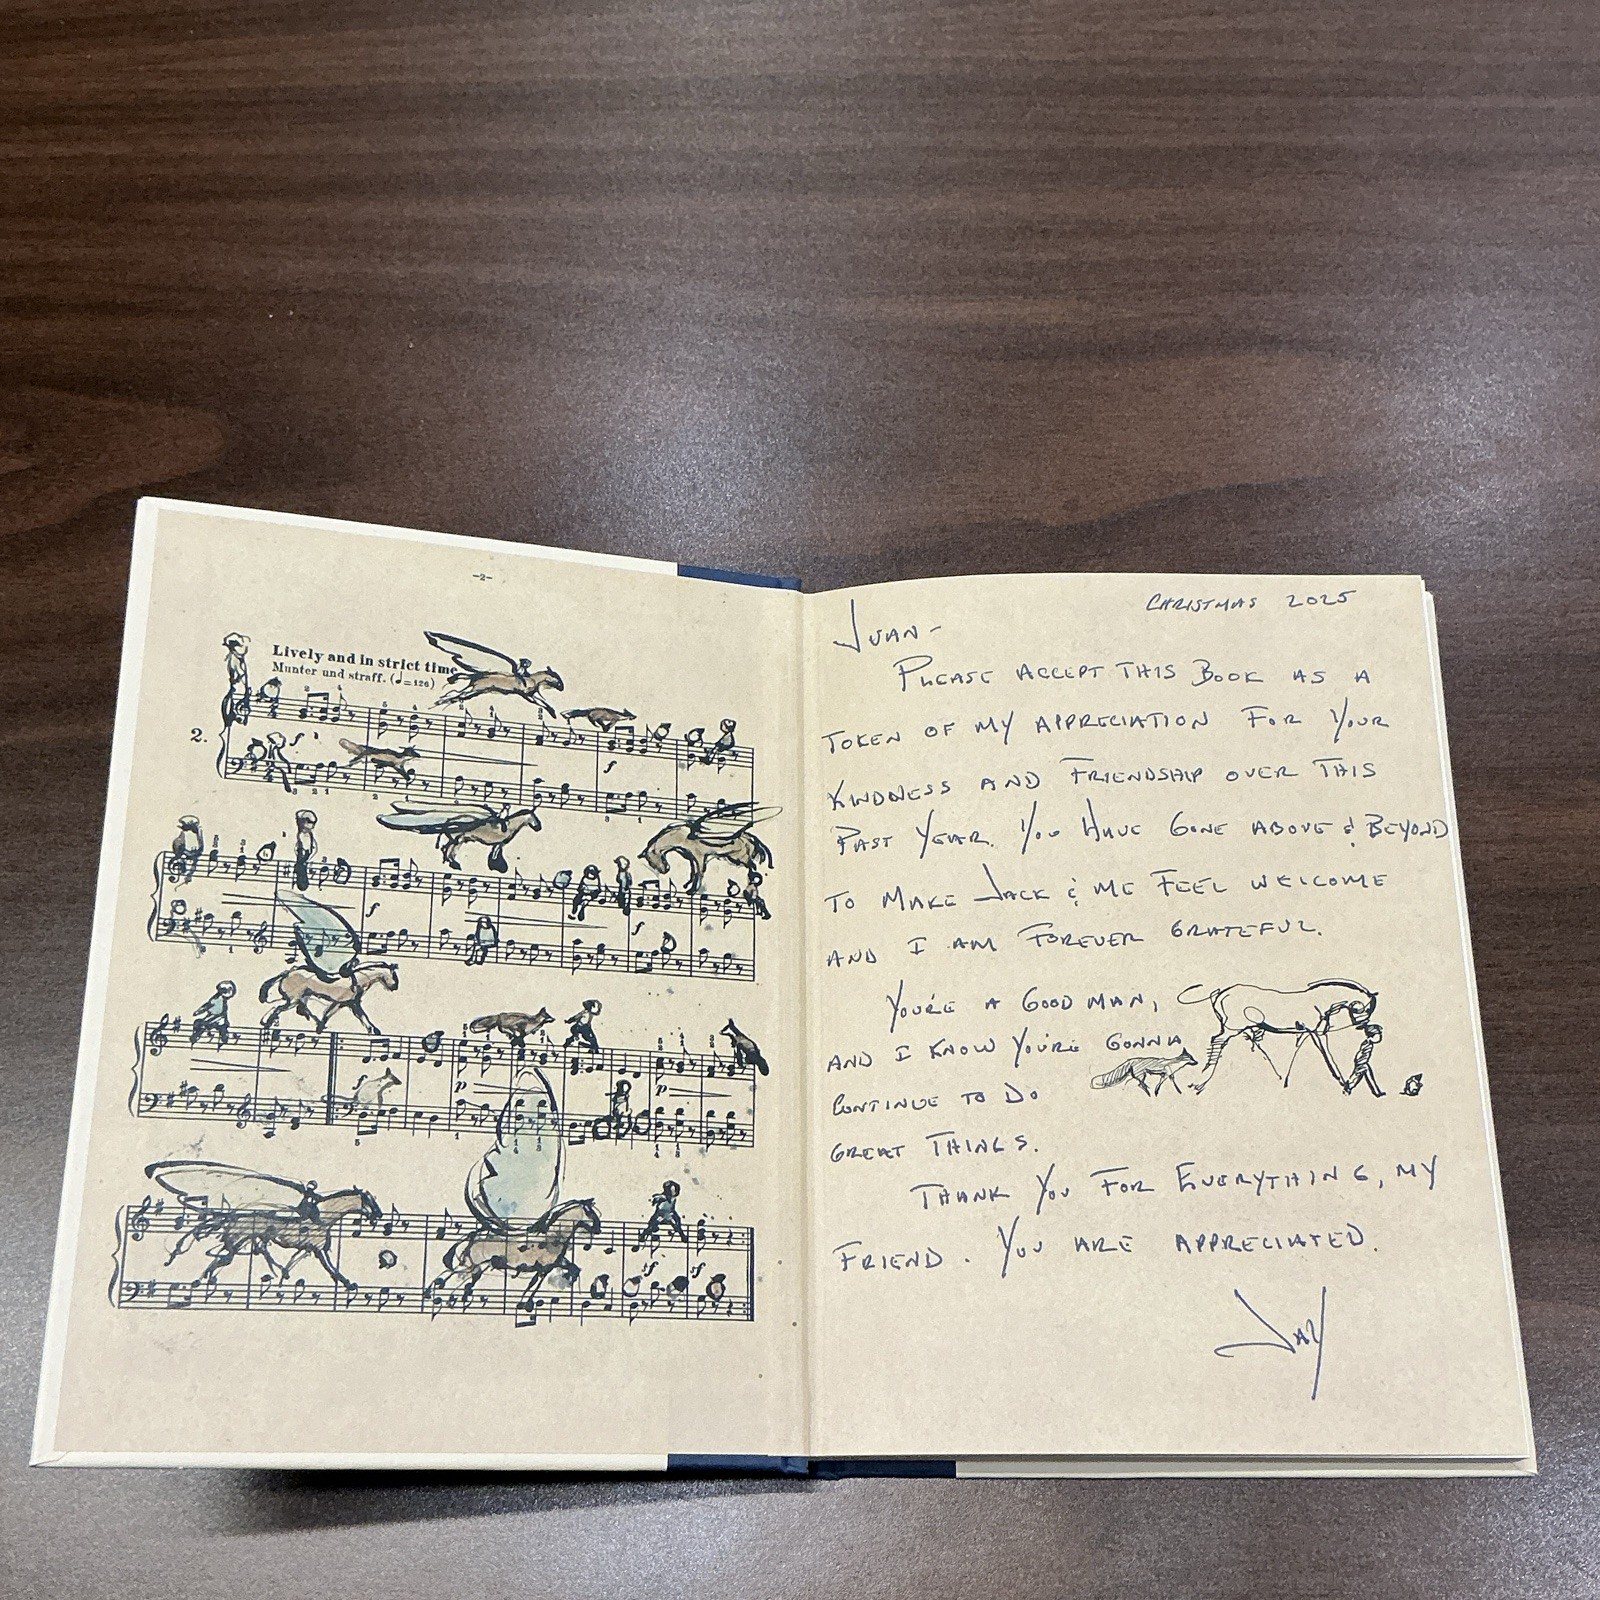 -2-
Lively and in strict time
Munter und straff. (♩=126)
2.
CHRISTMAS 2025
JUAN-
PLEASE ACCEPT THIS BOOK AS A
TOKEN OF MY APPRECIATION FOR YOUR
KINDNESS AND FRIENDSHIP OVER THIS
PAST YEAR. YOU HAVE GONE ABOVE & BEYOND
TO MAKE JACK & ME FEEL WELCOME
AND I AM FOREVER GRATEFUL.
YOU'RE A GOOD MAN,
AND I KNOW YOU'RE GONNA
CONTINUE TO DO
GREAT THINGS.
THANK YOU FOR EVERYTHING, MY
FRIEND. YOU ARE APPRECIATED.
JAY